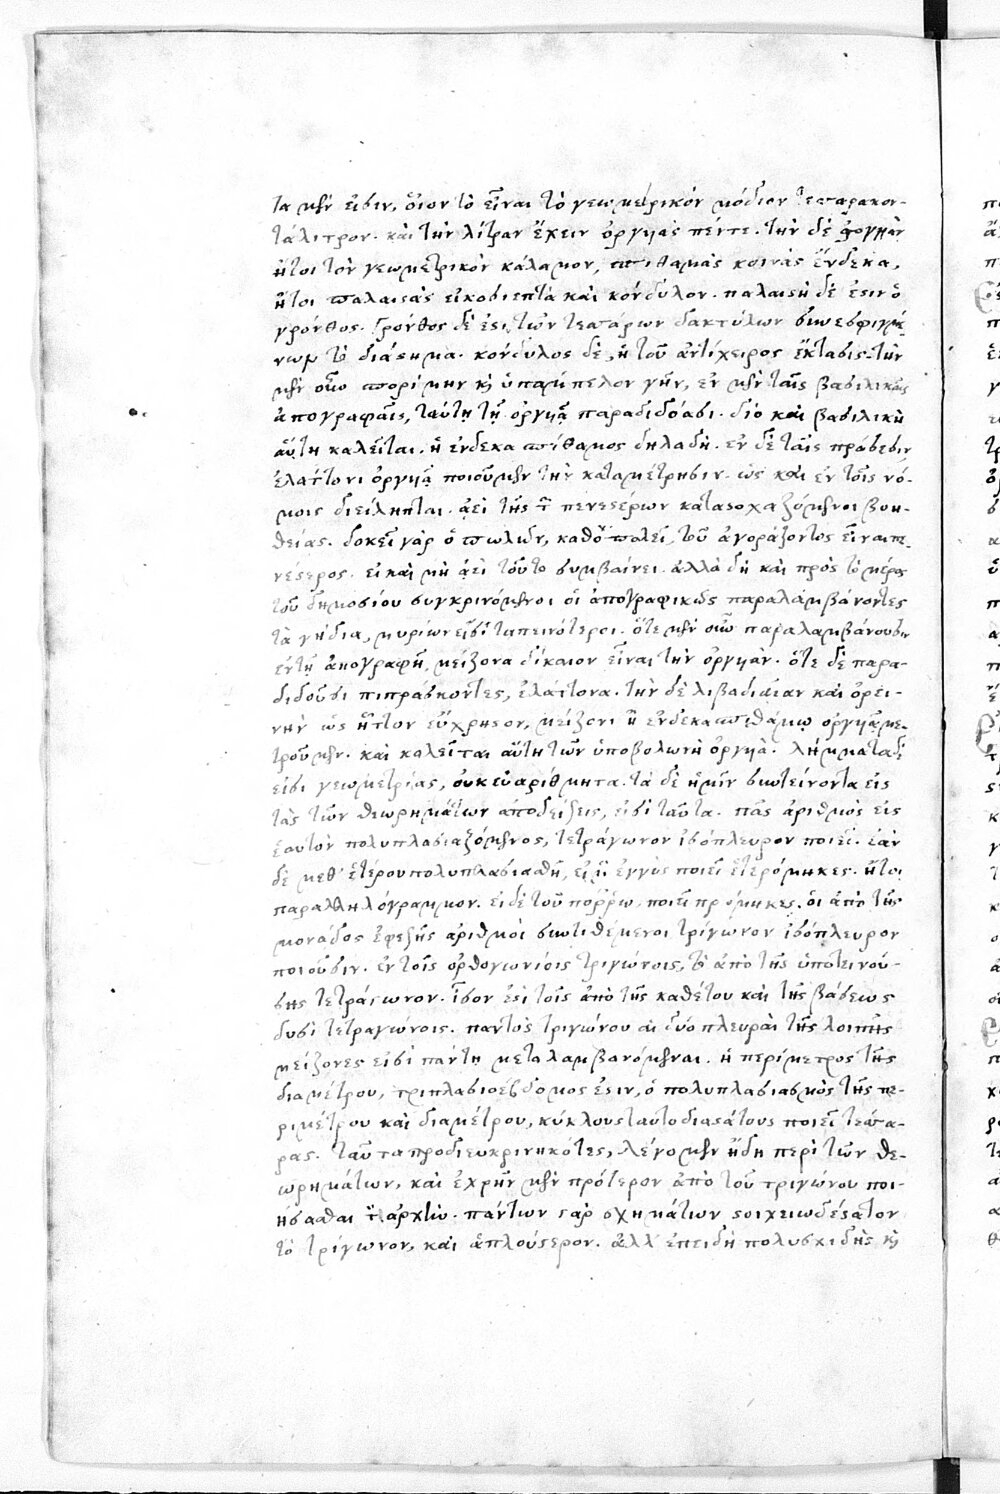 τα μέν εἰσιν, οἷον τὸ εἶναι τὸ γεωμετρικὸν μόδιον τεσσαρακον-
τάλιτρον. καὶ τὴν λίτραν ἔχειν ὀργυιὰς πέντε. τὴν δὲ ὀργυιὰν
ἤτοι τὸν γεωμετρικὸν κάλαμον, σπιθαμὰς κοινὰς ἕνδεκα,
ἤτοι παλαιστὰς εἰκοσιεπτὰ καὶ κόνδυλον. παλαιστὴ δέ ἐστιν ὁ
γρόνθος. γρόνθος δὲ ἐστι τῶν τεσσάρων δακτύλων συνεσφιγμέ-
νων τὸ διάστημα. κόνδυλος δὲ, ἡ τοῦ ἀντίχειρος ἔκτασις. τὴν
μὲν οὖν σπορίμην κ ὑπάμπελον γῆν, ἐν μὲν ταῖς βασιλικαῖς
ἀπογραφαῖς, ταύτῃ τῇ ὀργυιᾷ παραδιδόασι. διὸ καὶ βασιλικὴ
αὕτη καλεῖται. ἡ ἑνδεκασπίθαμος δηλαδή. ἐν δὲ ταῖς πράσεσιν
ἐλάττονι ὀργυιᾷ ποιοῦμεν τὴν καταμέτρησιν. ὡς καὶ ἐν τοῖς νό-
μοις διείληπται. ἀεὶ τῆς τ πενεστέρων καταστοχαζόμενοι βοη-
θείας. δοκεῖ γὰρ ὁ πωλῶν, καθὸ πωλεῖ, τοῦ ἀγοράζοντος εἶναι πε-
νέστερος. εἰ καὶ μὴ ἀεὶ τοῦτο συμβαίνει. ἀλλὰ δὴ καὶ πρὸς τὸ μέρος
τοῦ δημοσίου συγκρινόμενοι οἱ ἀπογραφικῶς παραλαμβάνοντες
τὰ γήδια, μυρίων εἰσὶ ταπεινότεροι. ὅτε μὲν οὖν παραλαμβάνουσιν
ἐν τῇ ἀπογραφῇ, μείζονα δίκαιον εἶναι τὴν ὀργυιάν. ὅτε δὲ παρα-
διδοῦσι πιπράσκοντες, ἐλάττονα. τὴν δὲ λιβαδιαίαν καὶ ὀρει-
νὴν ὡς ἧττον εὔχρηστον, μείζονι ἢ ἑνδεκασπιθάμῳ ὀργυιᾷ με-
τροῦμεν. καὶ καλεῖται αὕτη τῶν ὑποβολῶν ἡ ὀργυιά. λήμματα δέ
εἰσι γεωμετρίας, οὐκ εὐαρίθμητα. τὰ δὲ ἡμῖν συντείνοντα εἰς
τὰς τῶν θεωρημάτων ἀποδείξεις, εἰσὶ ταῦτα. πᾶς ἀριθμὸς εἰς
ἑαυτὸν πολυπλασιαζόμενος, τετράγωνον ἰσόπλευρον ποιεῖ. ἐὰν
δὲ μεθ' ἑτέρου πολυπλασιασθῇ, εἰ ἐγγὺς ποιεῖ ἑτερόμηκες. ἤτοι
παραλληλόγραμμον. εἰ δὲ τοῦ πόρρω, ποιεῖ πρόμηκες. οἱ ἀπὸ τῆς
μονάδος ἐφεξῆς ἀριθμοὶ συντιθέμενοι τρίγωνον ἰσόπλευρον
ποιοῦσιν. ἐν τοῖς ὀρθογωνίοις τριγώνοις, τὸ ἀπὸ τῆς ὑποτεινού-
σης τετράγωνον. ἴσον ἐστὶ τοῖς ἀπὸ τῆς καθέτου καὶ τῆς βάσεως
δυσὶ τετραγώνοις. παντὸς τριγώνου αἱ δύο πλευραὶ τῆς λοιπῆς
μείζονες εἰσὶ πάντῃ μεταλαμβανόμεναι. ἡ περίμετρος τῆς
διαμέτρου, τριπλασιοέβδομος ἐστιν, ὁ πολυπλασιασμὸς τῆς πε-
ριμέτρου καὶ διαμέτρου, κύκλους ταὐτοδιαστάτους ποιεῖ τέσσα-
ρας. ταῦτα προδιευκρινηκότες, λέγομεν ἤδη περὶ τῶν θε-
ωρημάτων, καὶ ἐχρῆν μὲν πρότερον ἀπὸ τοῦ τριγώνου ποι-
ήσασθαι τ ἀρχὴν. πάντων γὰρ σχημάτων στοιχειωδέστατον
τὸ τρίγωνον, καὶ ἁπλούστερον. ἀλλ' ἐπειδὴ πολυσχιδὴς κ